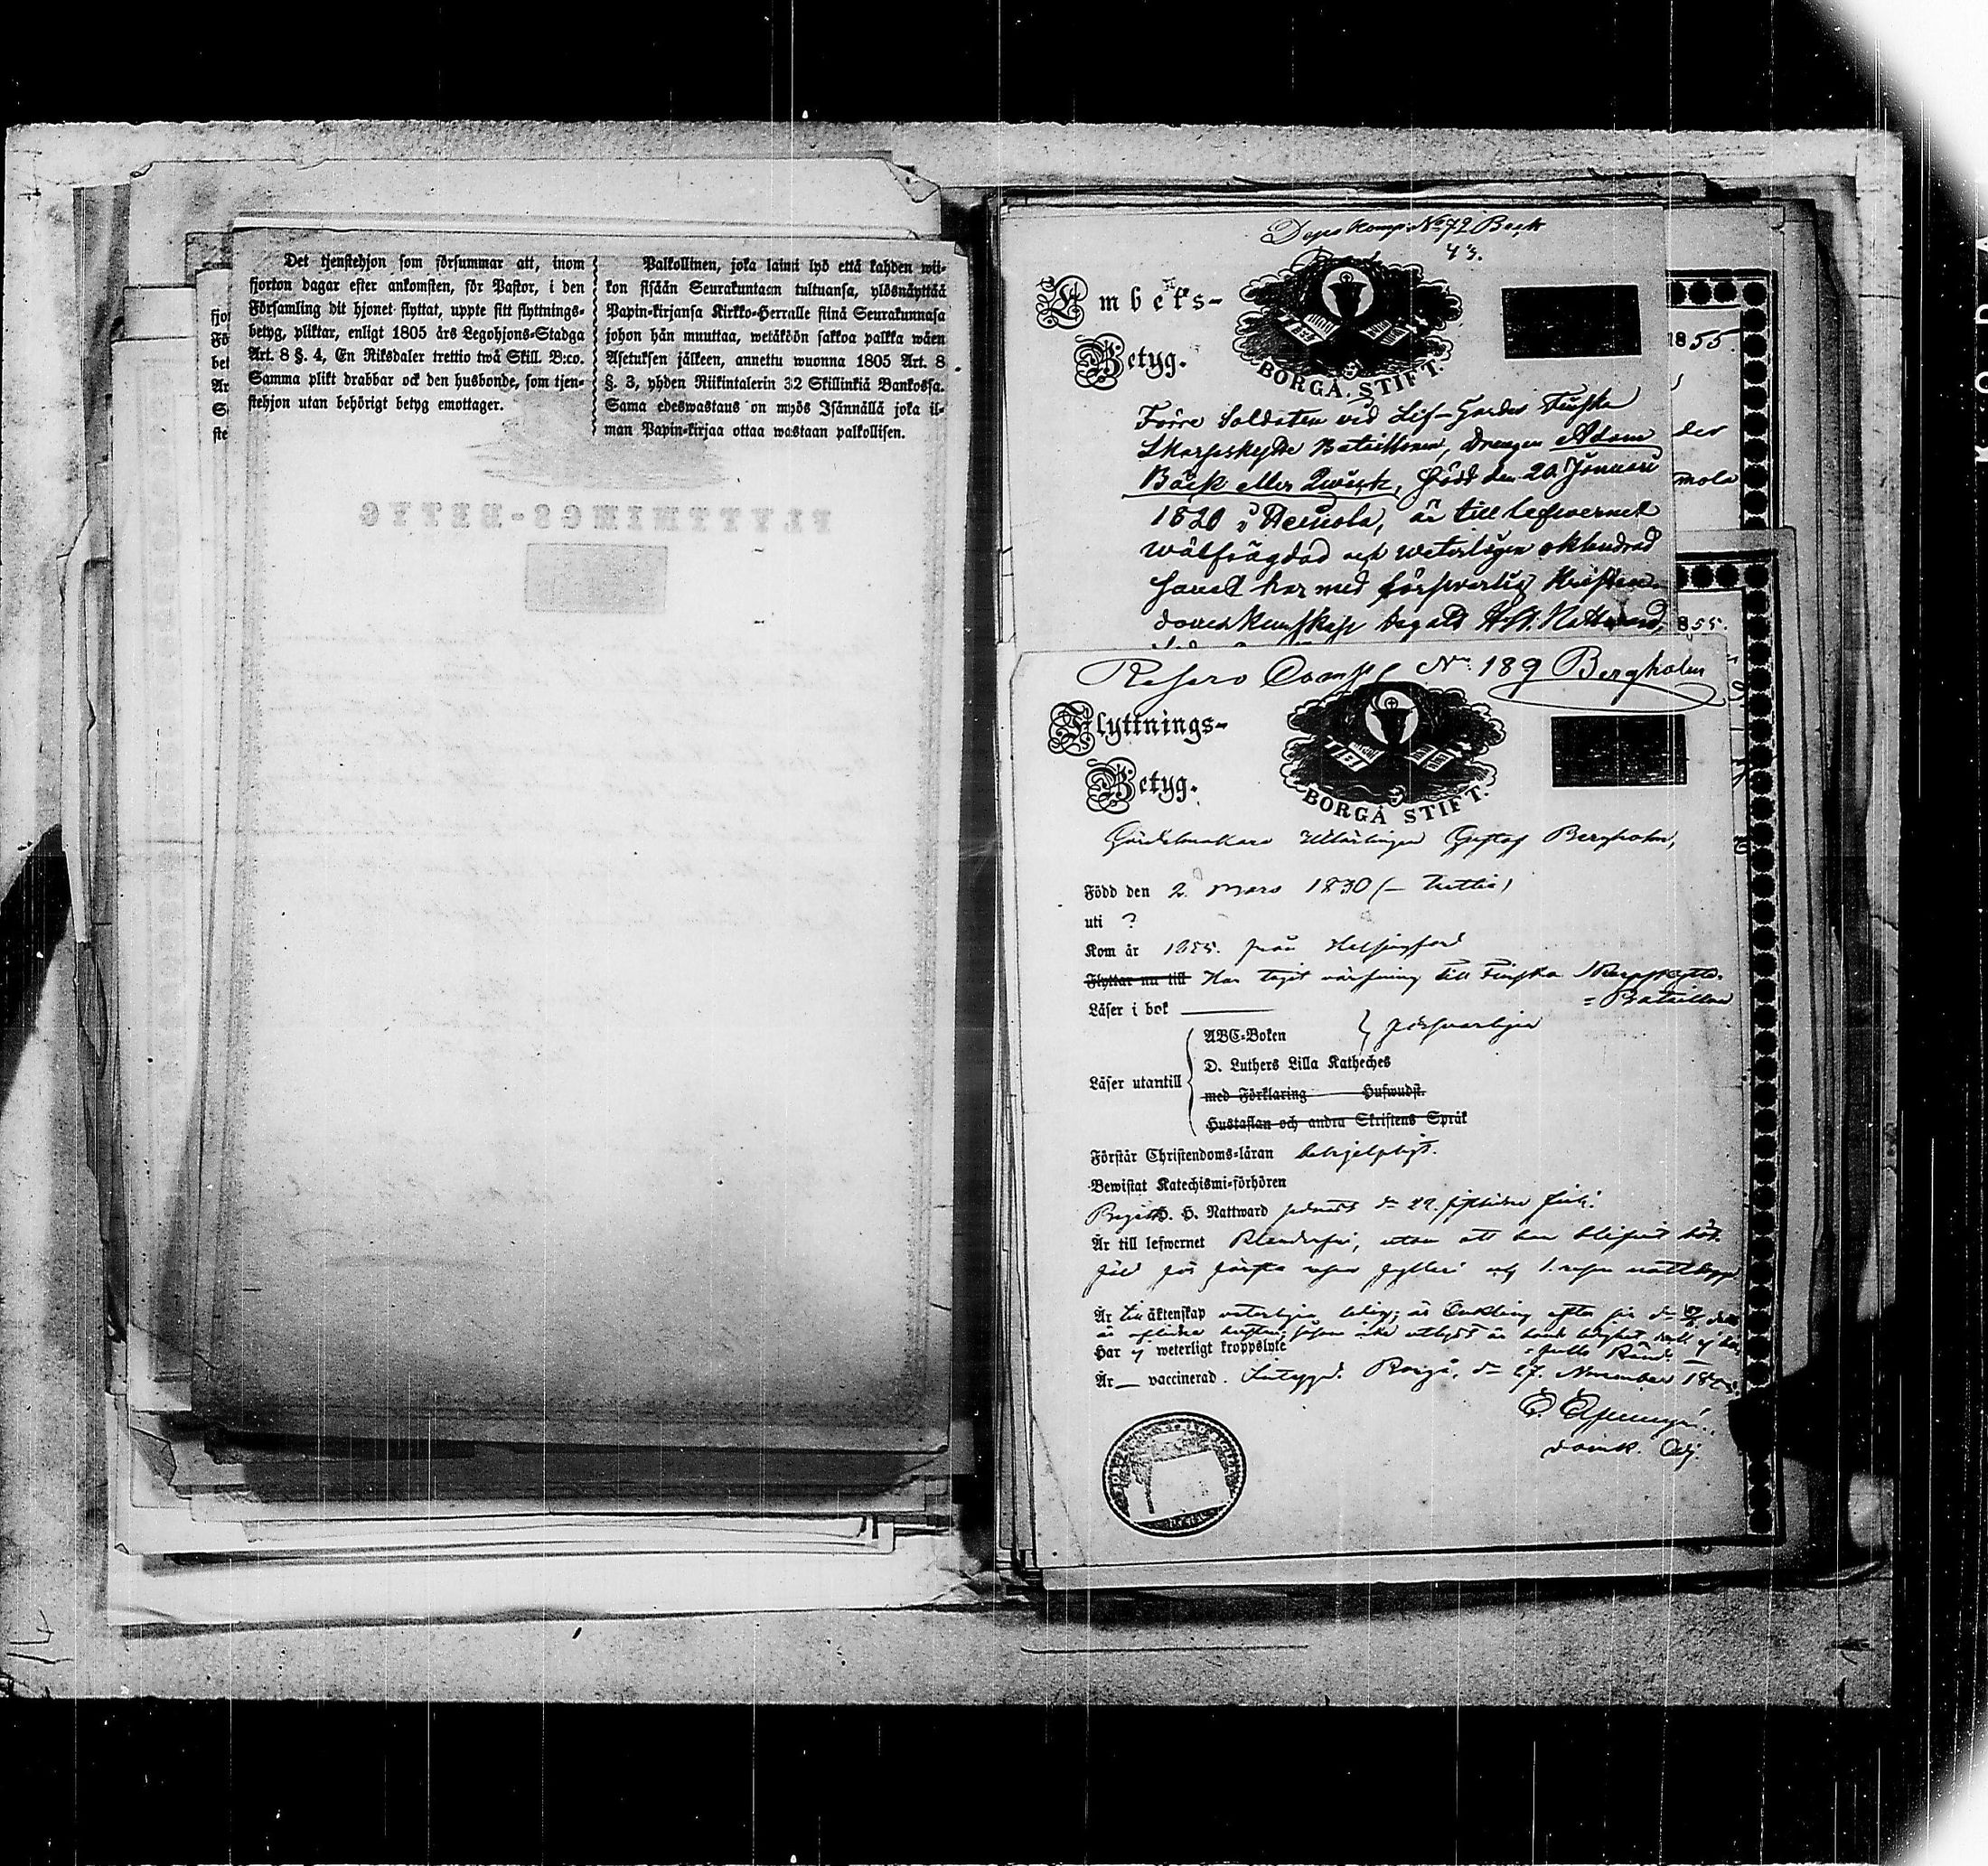 Det tjenstehjon som försummar att, inom
fjorton dagar efter ankomsten, för Pastor, i den
Församling dit hjonet flyttat, uppte sitt flyttnings-
betyg, pliktar, enligt 1805 års Legohjons-Stadga
Art. 8 §. 4, En Riksdaler trettio twå Skill. B:co.
Samma plikt drabbar ock den husbonde, som tjen-
stehjon utan behörigt betyg emottager.
Palkollinen, joka laimi lyö että kahden wii-
kon sisään Seurakuntaan tultuansa, ylösnäyttää
Papin-kirjansa Kirkko-Herralle siinä Seurakunnasa
johon hän muuttaa, wetäköön sakkoa palkka wäen
Asetuksen jälkeen, annettu wuonna 1805 Art. 8
§. 3, yhden Riikintalerin 32 Skillinkiä Bankossa.
Sama edeswastaus on myös Isännällä joka il-
man Papin-kirjaa ottaa wastaan palkollisen.
FLYTTNINGS-BETYG
Komp. No 72 Beck
43.
Embets-
Betyg.
BORGÅ STIFT.
1855.
Förre Soldaten vid Lif-Gardes Finska
Skarpskytte Bataillonen, Drengen Adam
Bäck eller Qwick, född den 20 Januari
1820 i Heinola, är till lefvernet
wälfrägdad och weterligen oklandrad
samt har med försvarlig Kristen-
domskunskap begått H. H. Nattvard,
der
mola
855.
Reserv Comp. No 189 Bergholm
Flyttnings-
Betyg.
BORGÅ STIFT.
Gördelmakare Utlärlingen Gustaf Bergholm,
Född den 2 Mars 1830 (= trettio)
uti ?
Kom år 1855. från Helsingfors
Flyttar nu till Har tagit värfning till Finska Skarpskytte-
= Bataillon
Läser i bok
ABC-Boken } försvarligen
D. Luthers Lilla Katheches
Läser utantill
med Förklaring Hufwudst.
Hustaflan och andra Skriftens Språk
Förstår Christendoms-läran behjelpligt.
Bewistat Katechismi-förhören
Begått H. H. Nattward sednast d. 22. sistlidne Juli.
Är till lefwernet Klanderfri, utan att han blifvit böt-
fäld för första resan fylleri och 1. resan
Är till äktenskap veterligen ledig; är Enkling efter
Har ej weterligt kroppslyte
Är vaccinerad. Intygar. Borgå, d. 27. November